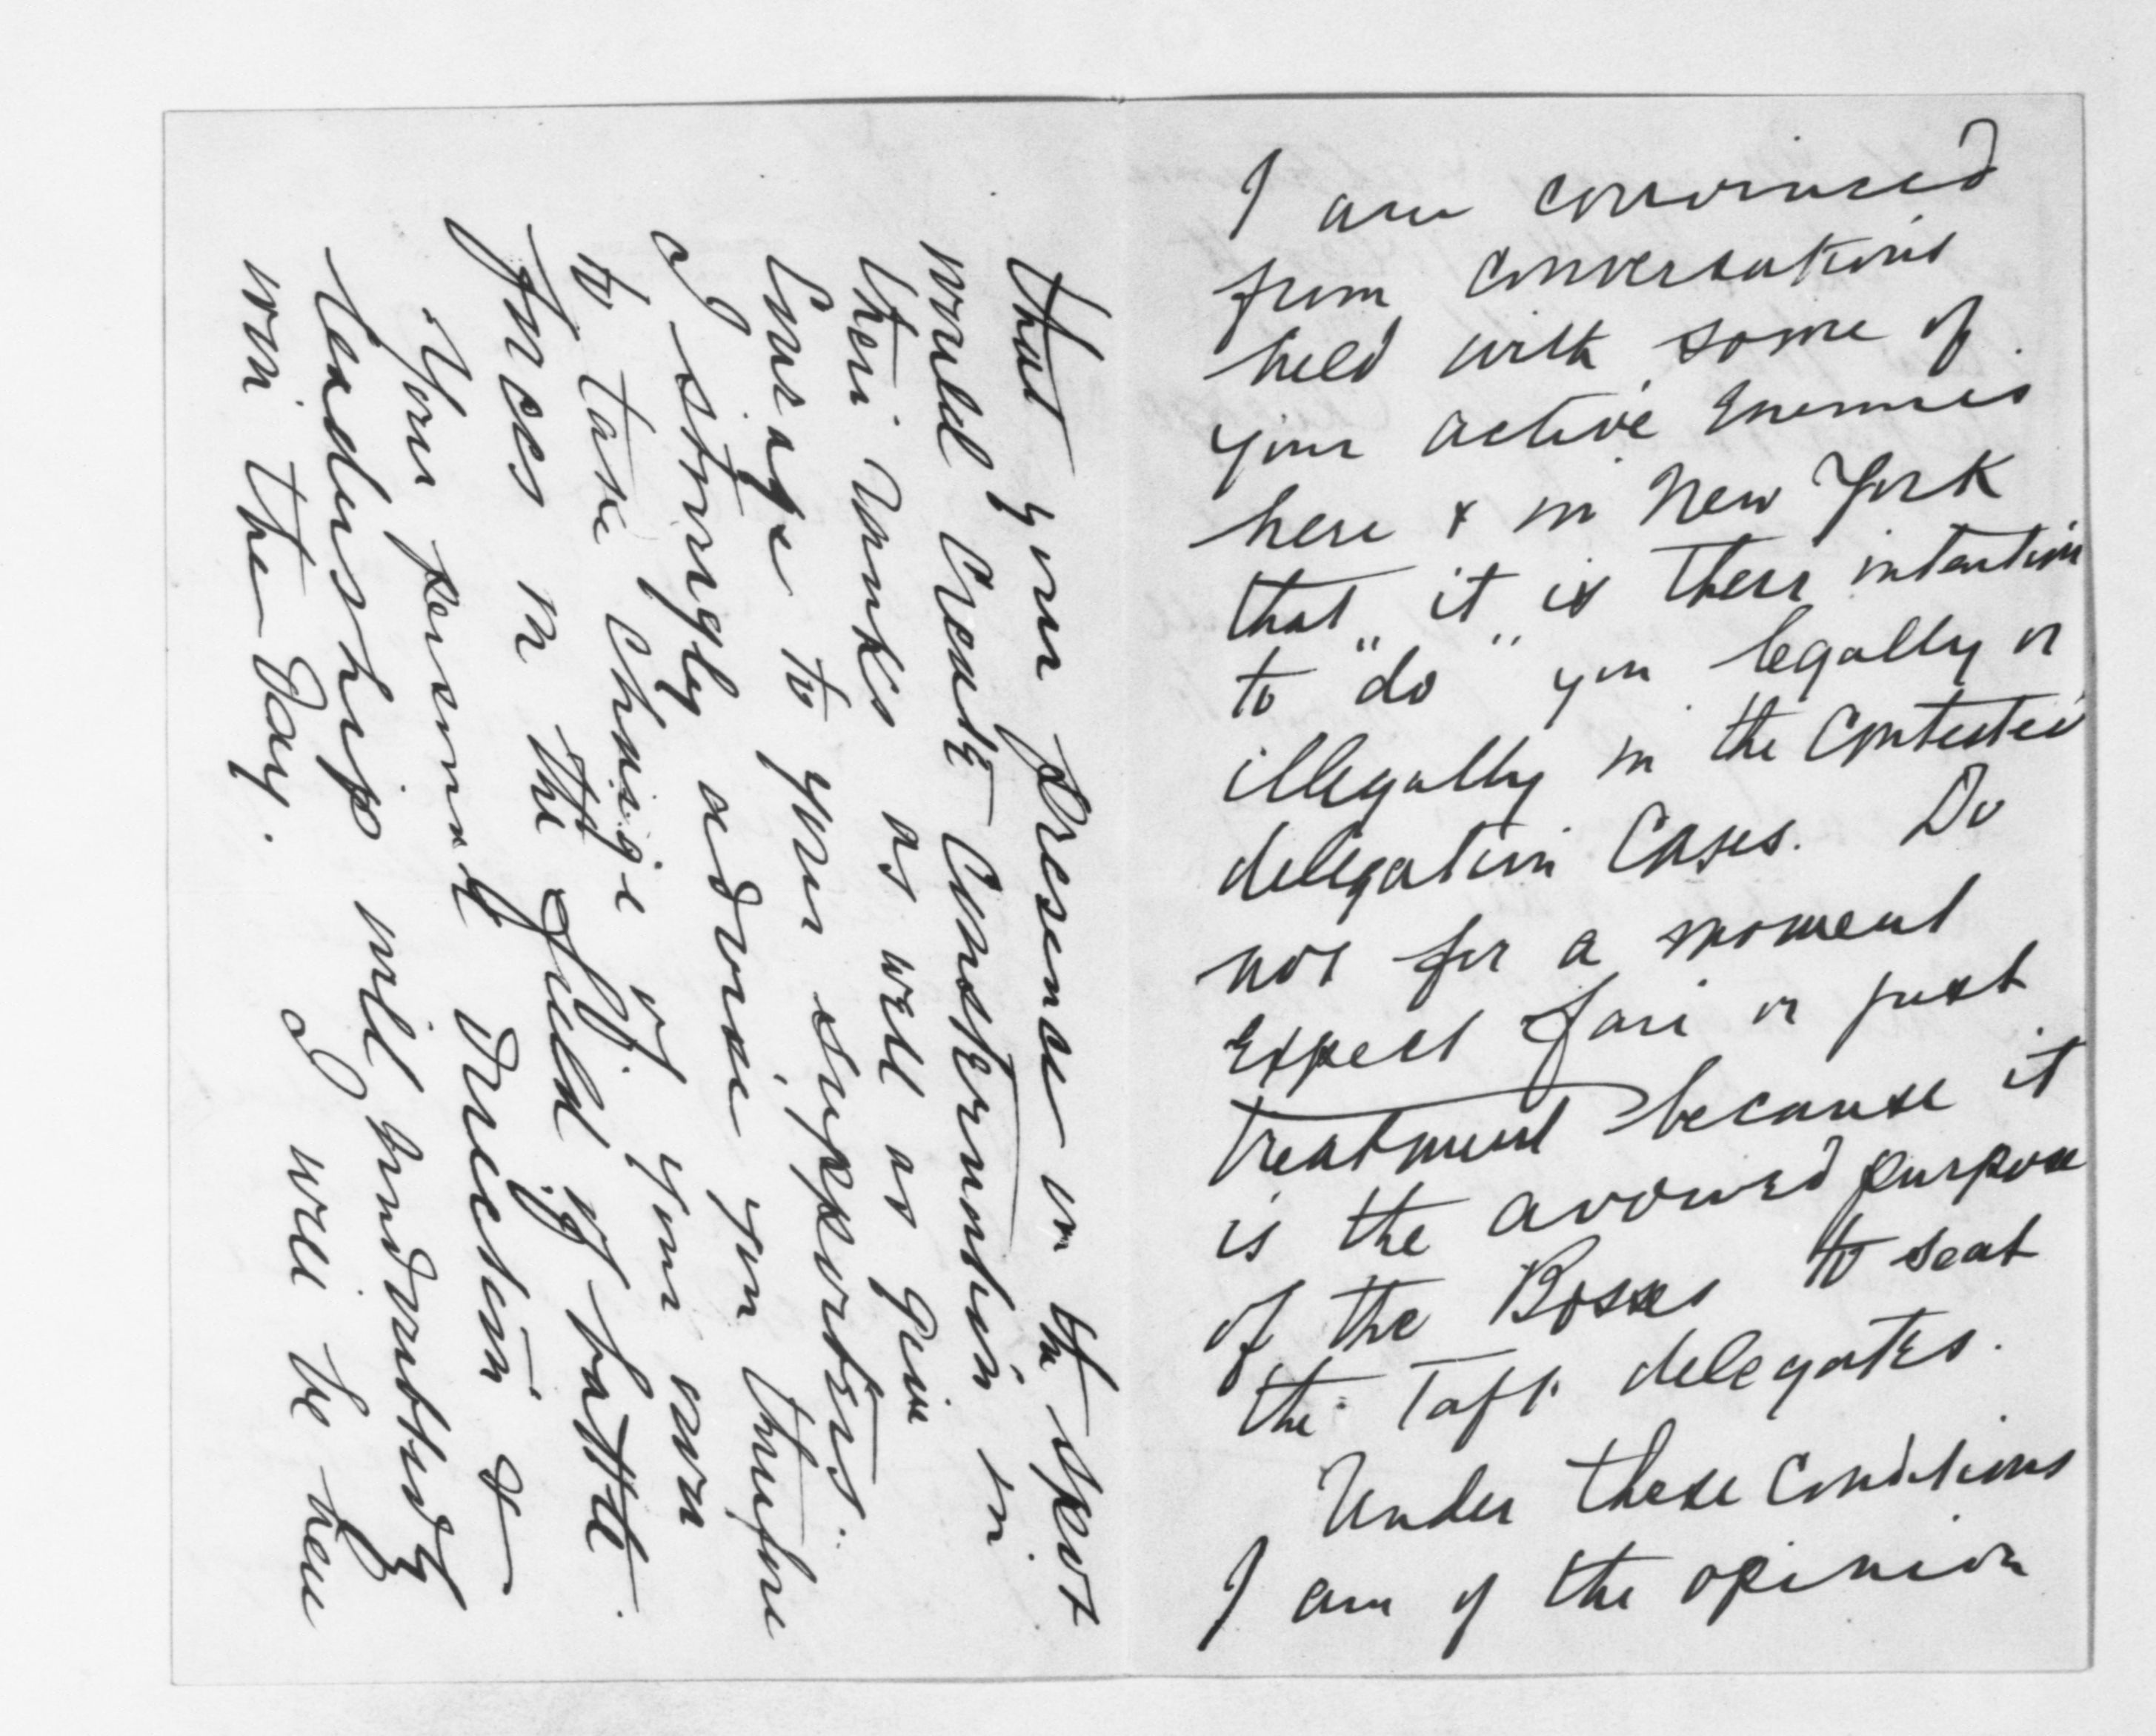 I am convinced
from conversations
held with some of
your active enemies
here & in New York
that it is their intention
to "do" you legally or
illegally in the contested
delegation cases. Do
not for a moment
expect fair or just
treatment because it
is the avowed purpose
of the Bosses to seat
the Taft delegates.
Under these conditions
I am of the opinion
that your presence on the spot
would create consternation in
their ranks as well as give
courage to your supporters.
I strongly advise you therefore
to take charge of your own
forces in the field of battle.
Your personal direction &
leadership will undoubtedly
win the day. I will be here